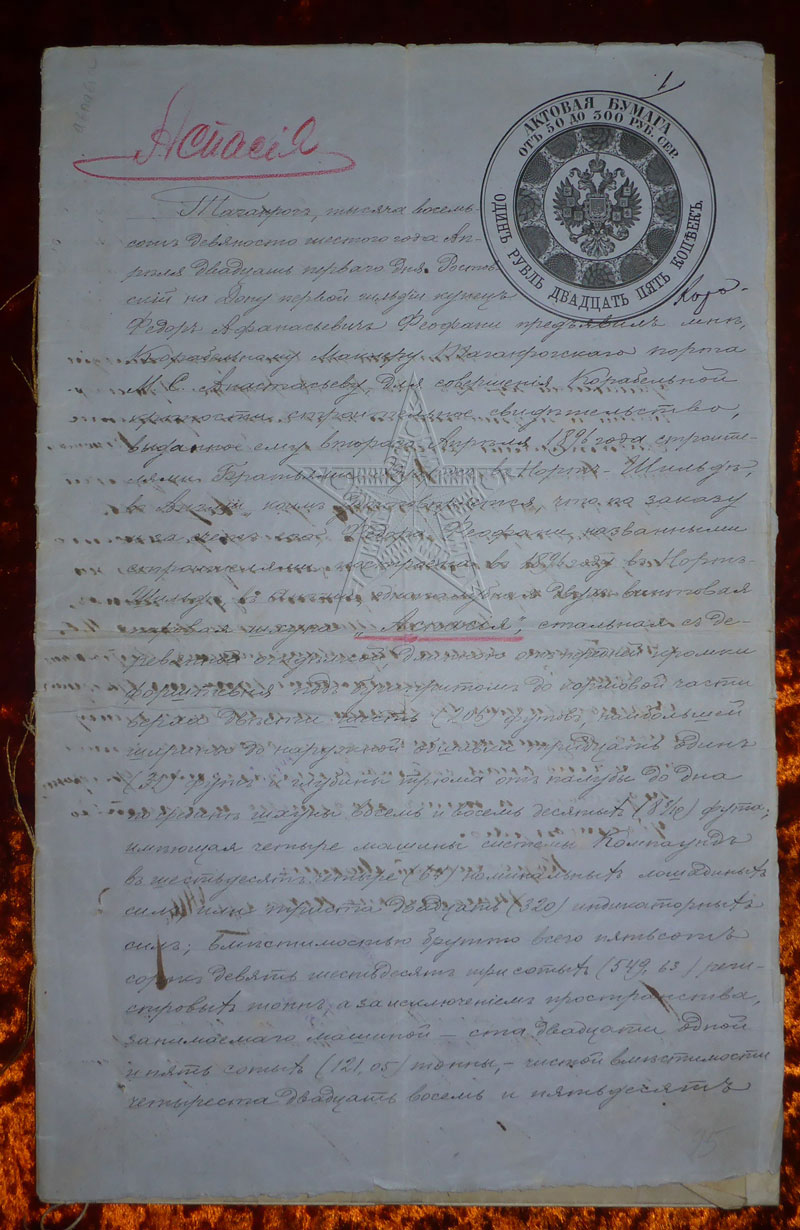 Аспасія
АКТОВАЯ БУМАГА
ОТЪ 50 ДО 300 РУБ. СЕР.
ОДИНЪ РУБЛЬ ДВАДЦАТЬ ПЯТЬ КОПѢЕКЪ.
Таганрогъ, тысяча восемь-
сотъ девяносто шестого года Ап-
рѣля двадцать перваго дня. Росто-
скій на Дону первой гильдіи купецъ
Федоръ Афанасьевичъ Феофани предъявилъ мнѣ, Кора-
Корабельному Маклеру Таганрогскаго порта
М. С. Анастасьеву, для совершенія Корабельной
крѣпости строительное свидѣтельство,
выданное ему втораго Апрѣля 1896 года строите-
лями въ Нортъ-Шильдѣ,
въ Англіи, коимъ что по заказу
Феофани, названными
строителями въ 1896 году въ Нортъ-
Шильдѣ въ Англіи двухъ винтовая
паровая шхуна "Аспасія" стальная съ де-
длиною отъ кромки
форштевня подъ бугшпритомъ до кормовой части
двѣсти шесть (206) футовъ, наибольшей
шириною до наружной обшивки тридцать одинъ
(31) футъ и глубины трюма отъ палубы до дна
по срединѣ шхуны восемь и восемь десятыхъ (8 8/10) фута,
имѣющая четыре машины системы Компаундъ
въ шестьдесятъ четыре (64) номинальныхъ лошадиныхъ
силъ или триста двадцать (320) индикаторныхъ
силъ; вмѣстимостью брутто всего пятьсотъ
сорокъ девять шестьдесятъ три сотыхъ (549,63) реги-
стровыхъ тоннъ, а за исключеніемъ пространства,
занимаемаго машиной – ста двадцати одной
и пять сотыхъ (121,05) тонны, – чистой вмѣстимости
четыреста двадцать восемь и пятьдесятъ